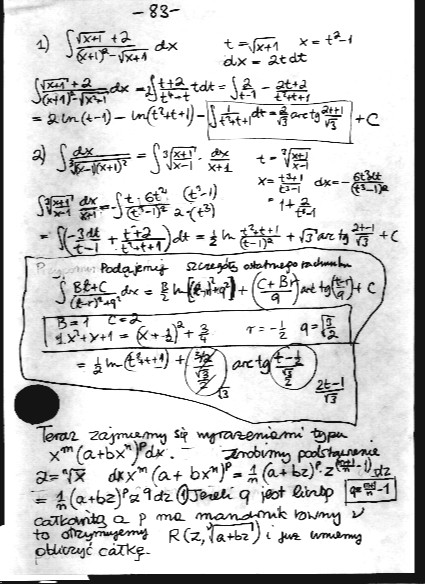 -83-
1) ∫ (√(x+1) + 2)/((x+1)² - √(x+1)) dx t = √(x+1) x = t²-1
dx = 2t dt
∫ (√(x+1) + 2)/((x+1)² - √(x+1)) dx = 2∫ (t+2)/(t⁴-t) t dt = ∫ 2/(t-1) - (2t+2)/(t²+t+1)
= 2 ln(t-1) - ln(t²+t+1) - ∫ 1/(t²+t+1) dt = 2/√3 arc tg (2t+1)/√3 + C
2) ∫ dx/∛((x-1)(x+1)²) = ∫ ∛((x+1)/(x-1)) · dx/(x+1) t = ∛((x+1)/(x-1))
x = (t³+1)/(t³-1) dx = -6t²dt/(t³-1)²
= 1 + 2/(t³-1)
∫ ∛((x+1)/(x-1)) dx/(x+1) = -∫ t·6t² (t³-1)/((t³-1)² 2·(t³))
= ∫ (-3dt/(t-1) + (t+2)/(t²+t+1)) dt = ½ ln (t²+t+1)/(t-1)² + √3 arc tg (2t-1)/√3 + C
Podajemy szczegóły ostatniego rachunku
∫ (Bt+C)/((t-r)²+q²) dx = B/2 ln((t-r)²+q²) + ((C+Br)/q) arc tg((t-r)/q) + C
B=1 C=2
1.x²+x+1 = (x+½)² + ¾ r = -½ q = √3/2
= ½ ln(t²+t+1) + (3/2)/(√3/2) √3 arc tg (t-½)/(√3/2) (2t-1)/√3
Teraz zajmiemy się wyrażeniami typu
xᵐ(a+bxⁿ)ᵖdx. zrobimy podstawienie
z=ⁿ√x dx xᵐ(a+bxⁿ)ᵖ = 1/n (a+bz)ᵖ · z^((m+1)/n -1) dz
= 1/n (a+bz)ᵖ z^q dz ① Jeżeli q jest liczbą q = (m+1)/n - 1
całkowitą a p ma mianownik równy ν
to otrzymujemy R(z, ᵛ√(a+bz)) i już umiemy
obliczyć całkę.